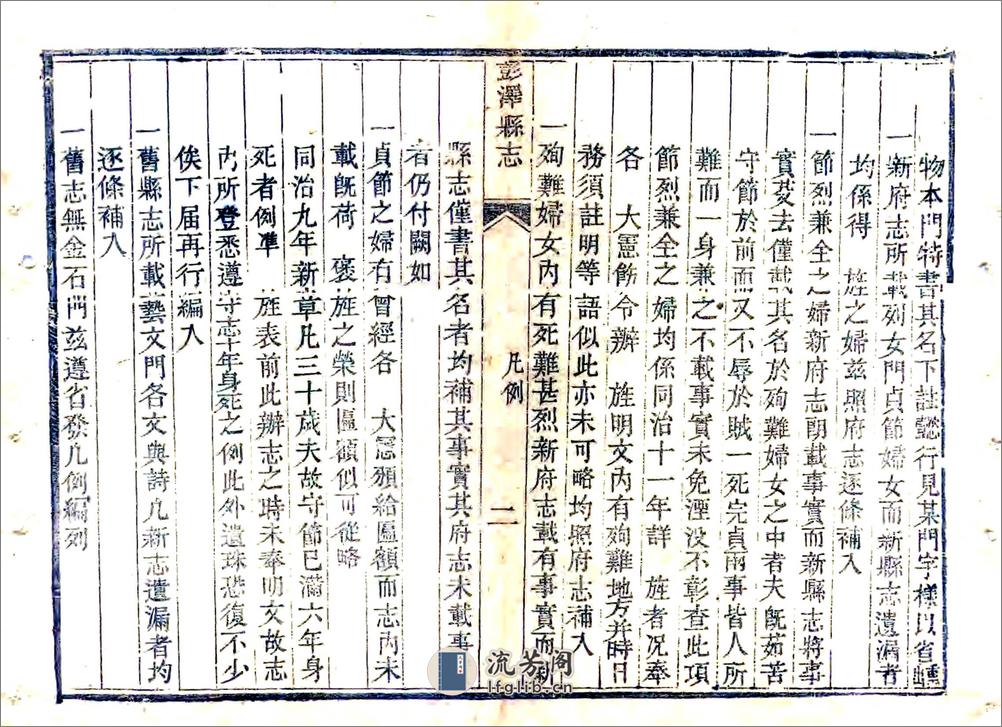 物本門特書其名下註懿行見某門字樣以省
一新府志所載列女門貞節婦女而新縣志遺漏者
均係得 旌之婦茲照府志逐條補入
一節烈兼全之婦新府志朗載事實而新縣志將事
實芟去僅載其名於殉難婦女之中者夫既茹苦
守節於前而又不辱於賊一死完貞兩事皆人所
難而一身兼之不載事實未免湮沒不彰查此項
節烈兼全之婦均係同治十一年詳 旌者況奉
各 大憲飭令辦 旌明文內有殉難地方并時日
務須註明等語似此亦未可略均照府志補入
一殉難婦女內有死難甚烈新府志載有事實而新
彭澤縣志 凡例 二
縣志僅書其名者均補其事實其府志未載事
者仍付闕如
一貞節之婦有曾經各 大憲頒給匾額而志內未
載既荷 褒旌之榮則匾額似可從略
同治九年新章凡三十歲夫故守節已滿六年身
死者例準 旌表前此辦志之時未奉明文故志
內所登悉遵守志十年身死之例此外遺珠恐復不少
俟下届再行編入
一舊縣志所載藝文門各文與詩凡新志遺漏者均
逐條補入
一舊志無金石門茲遵省發凡例編列
流芳閣
lfglib.cn